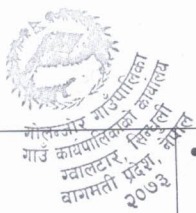 गोलन्जोर गाउँपालिका
गाउँ कार्यपालिकाको कार्यालय
ग्वालटार, सिन्धुली
बागमती प्रदेश, नेपाल
२०७३